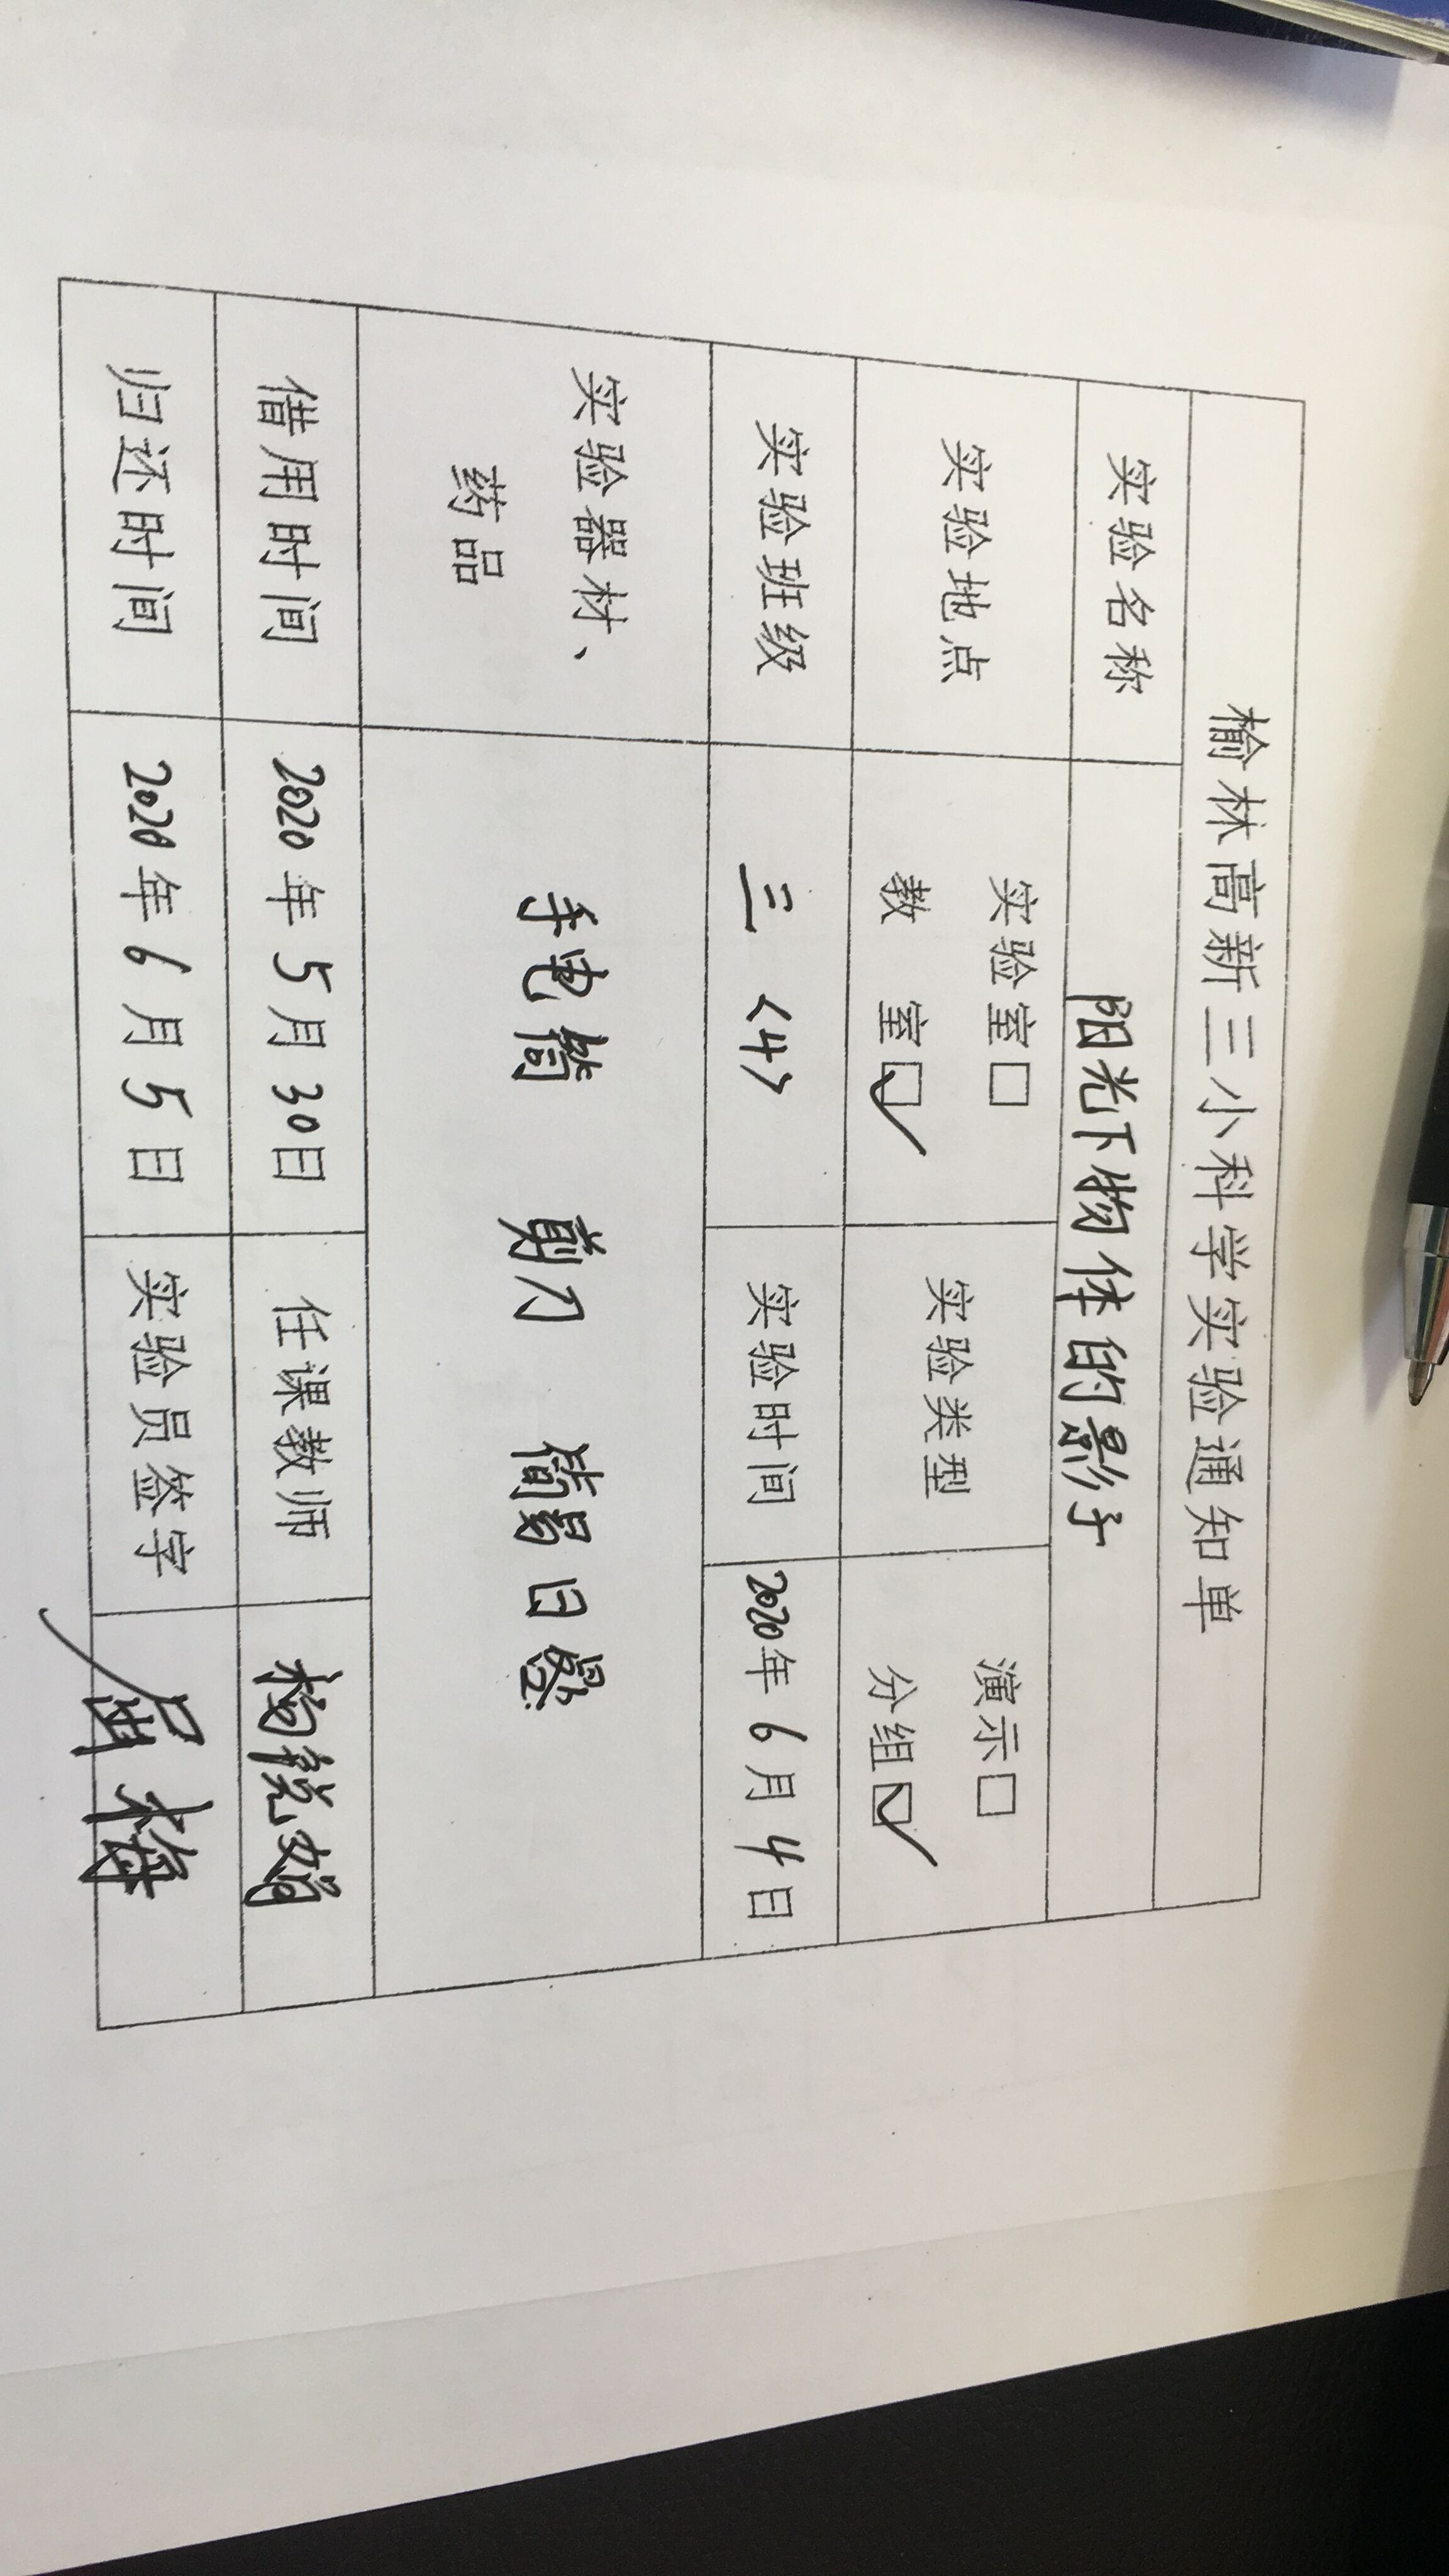 榆林高新三小科学实验通知单
实验名称 阳光下物体的影子
实验地点 实验室□ 教 室☑ 实验类型 演示□ 分组☑
实验班级 三〈4〉 实验时间 2020年6月4日
实验器材、
药品 手电筒 剪刀 简易日晷
借用时间 2020年5月30日 任课教师 杨锐娟
归还时间 2020年6月5日 实验员签字 屈梅